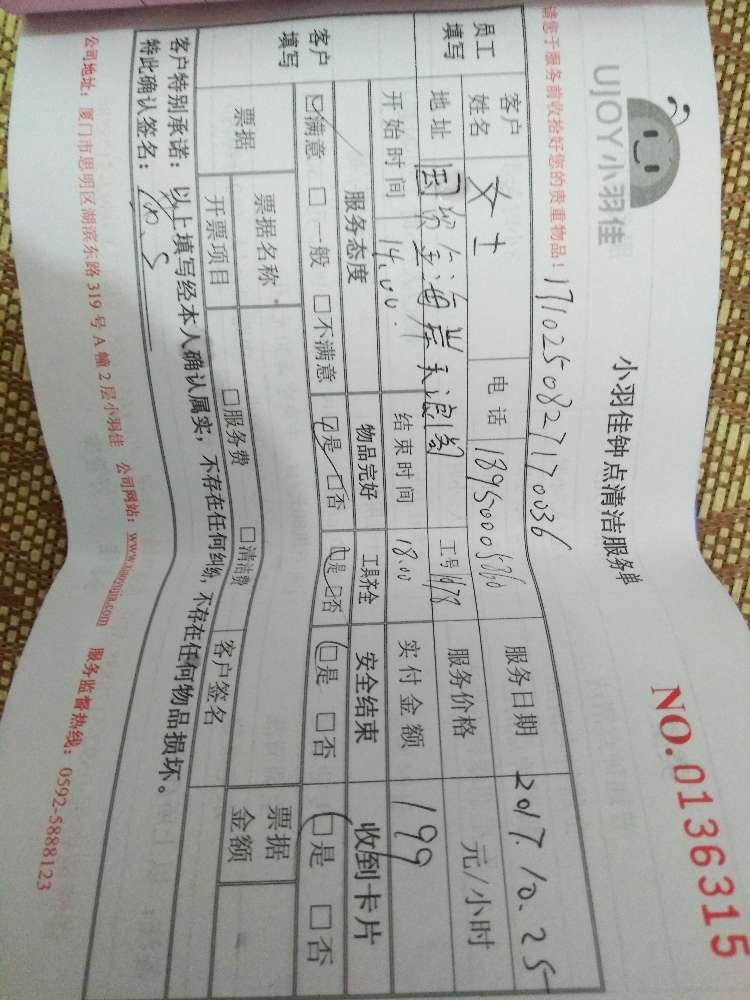 UJOY小羽佳
小羽佳钟点清洁服务单
NO.0136315
请您于服务前收拾好您的贵重物品！
17102508271170036
员工填写
客户姓名 女士 电话 服务日期 2017.10.25
地址 国贸金海岸天澜阁 工号 服务价格 元/小时
开始时间 14:00. 结束时间 18:00 实付金额 199
客户填写
服务态度 物品完好 工具齐全 安全结束 收到卡片
☑满意 □一般 □不满意 ☑是 □否 ☑是 □否 ☑是 □否 ☑是 □否
票据 票据名称 客户签名 票据金额
开票项目 □服务费 □清洁费
客户特别承诺：以上填写经本人确认属实，不存在任何纠纷，不存在任何物品损坏。
特此确认签名：
公司地址：厦门市思明区湖滨东路319号A幢2层小羽佳 公司网站：www.xiaoyujia.com 服务监督热线：0592-5888123